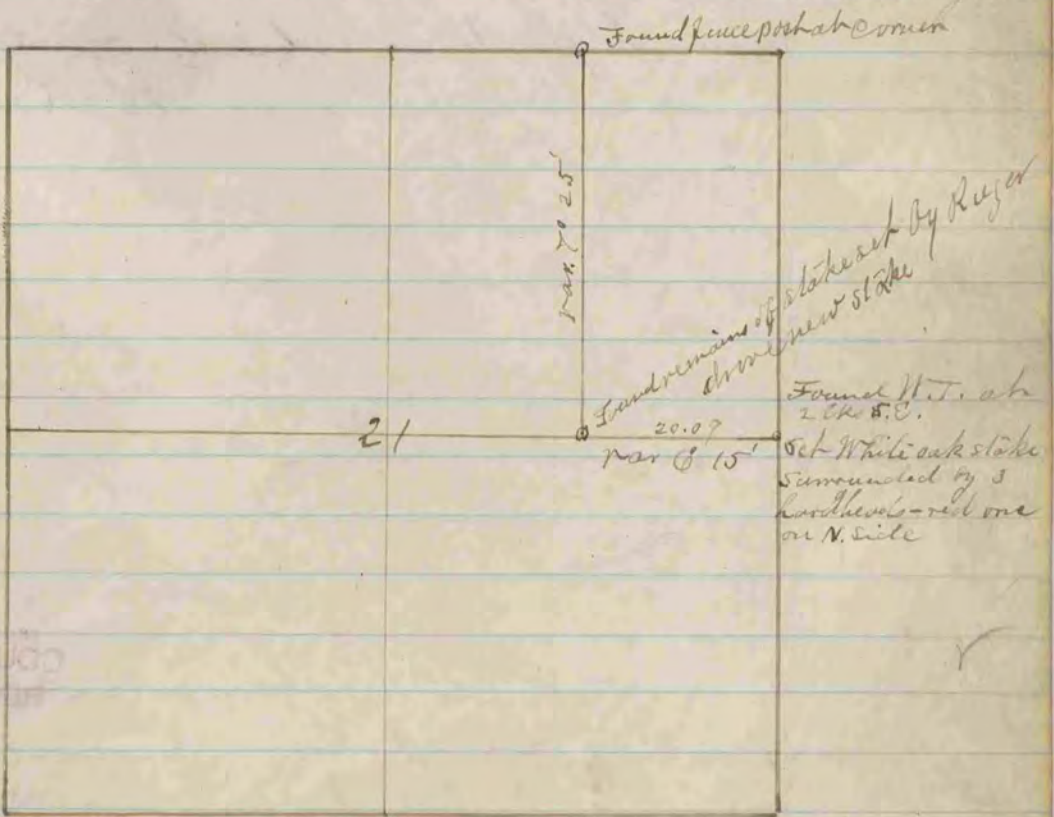 Found fence post at corner
Var. 7° 25'
Found remains of stake set by Ruger
drove new stake
21
20.07
Var 6° 15'
Found W.T. at
2 lks S.E.
Set White oak stake
surrounded by 3
hardheads - red one
on N. side